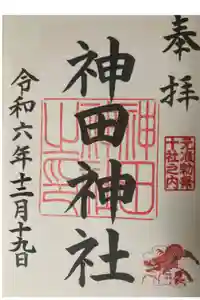 奉拝
元准勅祭
十社之内
神田神社
令和六年十二月十九日